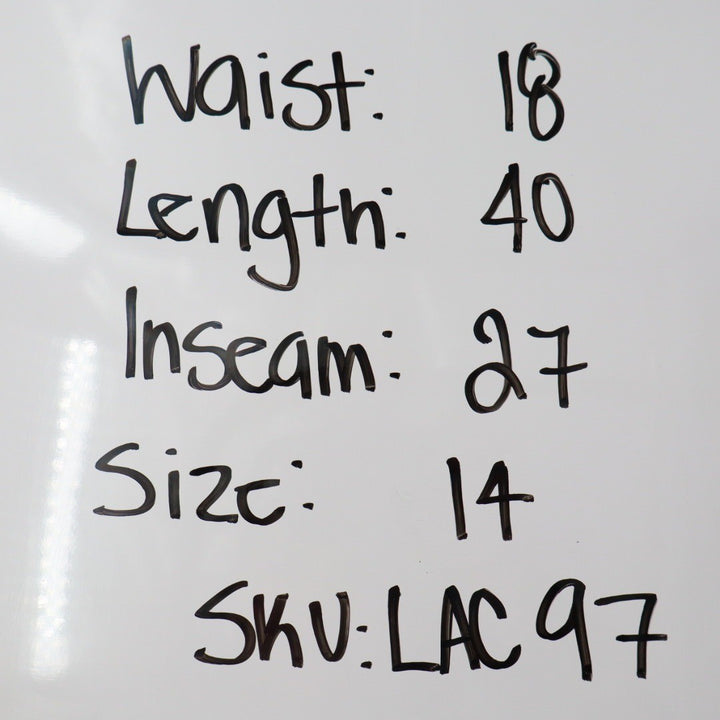 Waist: 18
Length: 40
Inseam: 27
Size: 14
SKU: LAC97